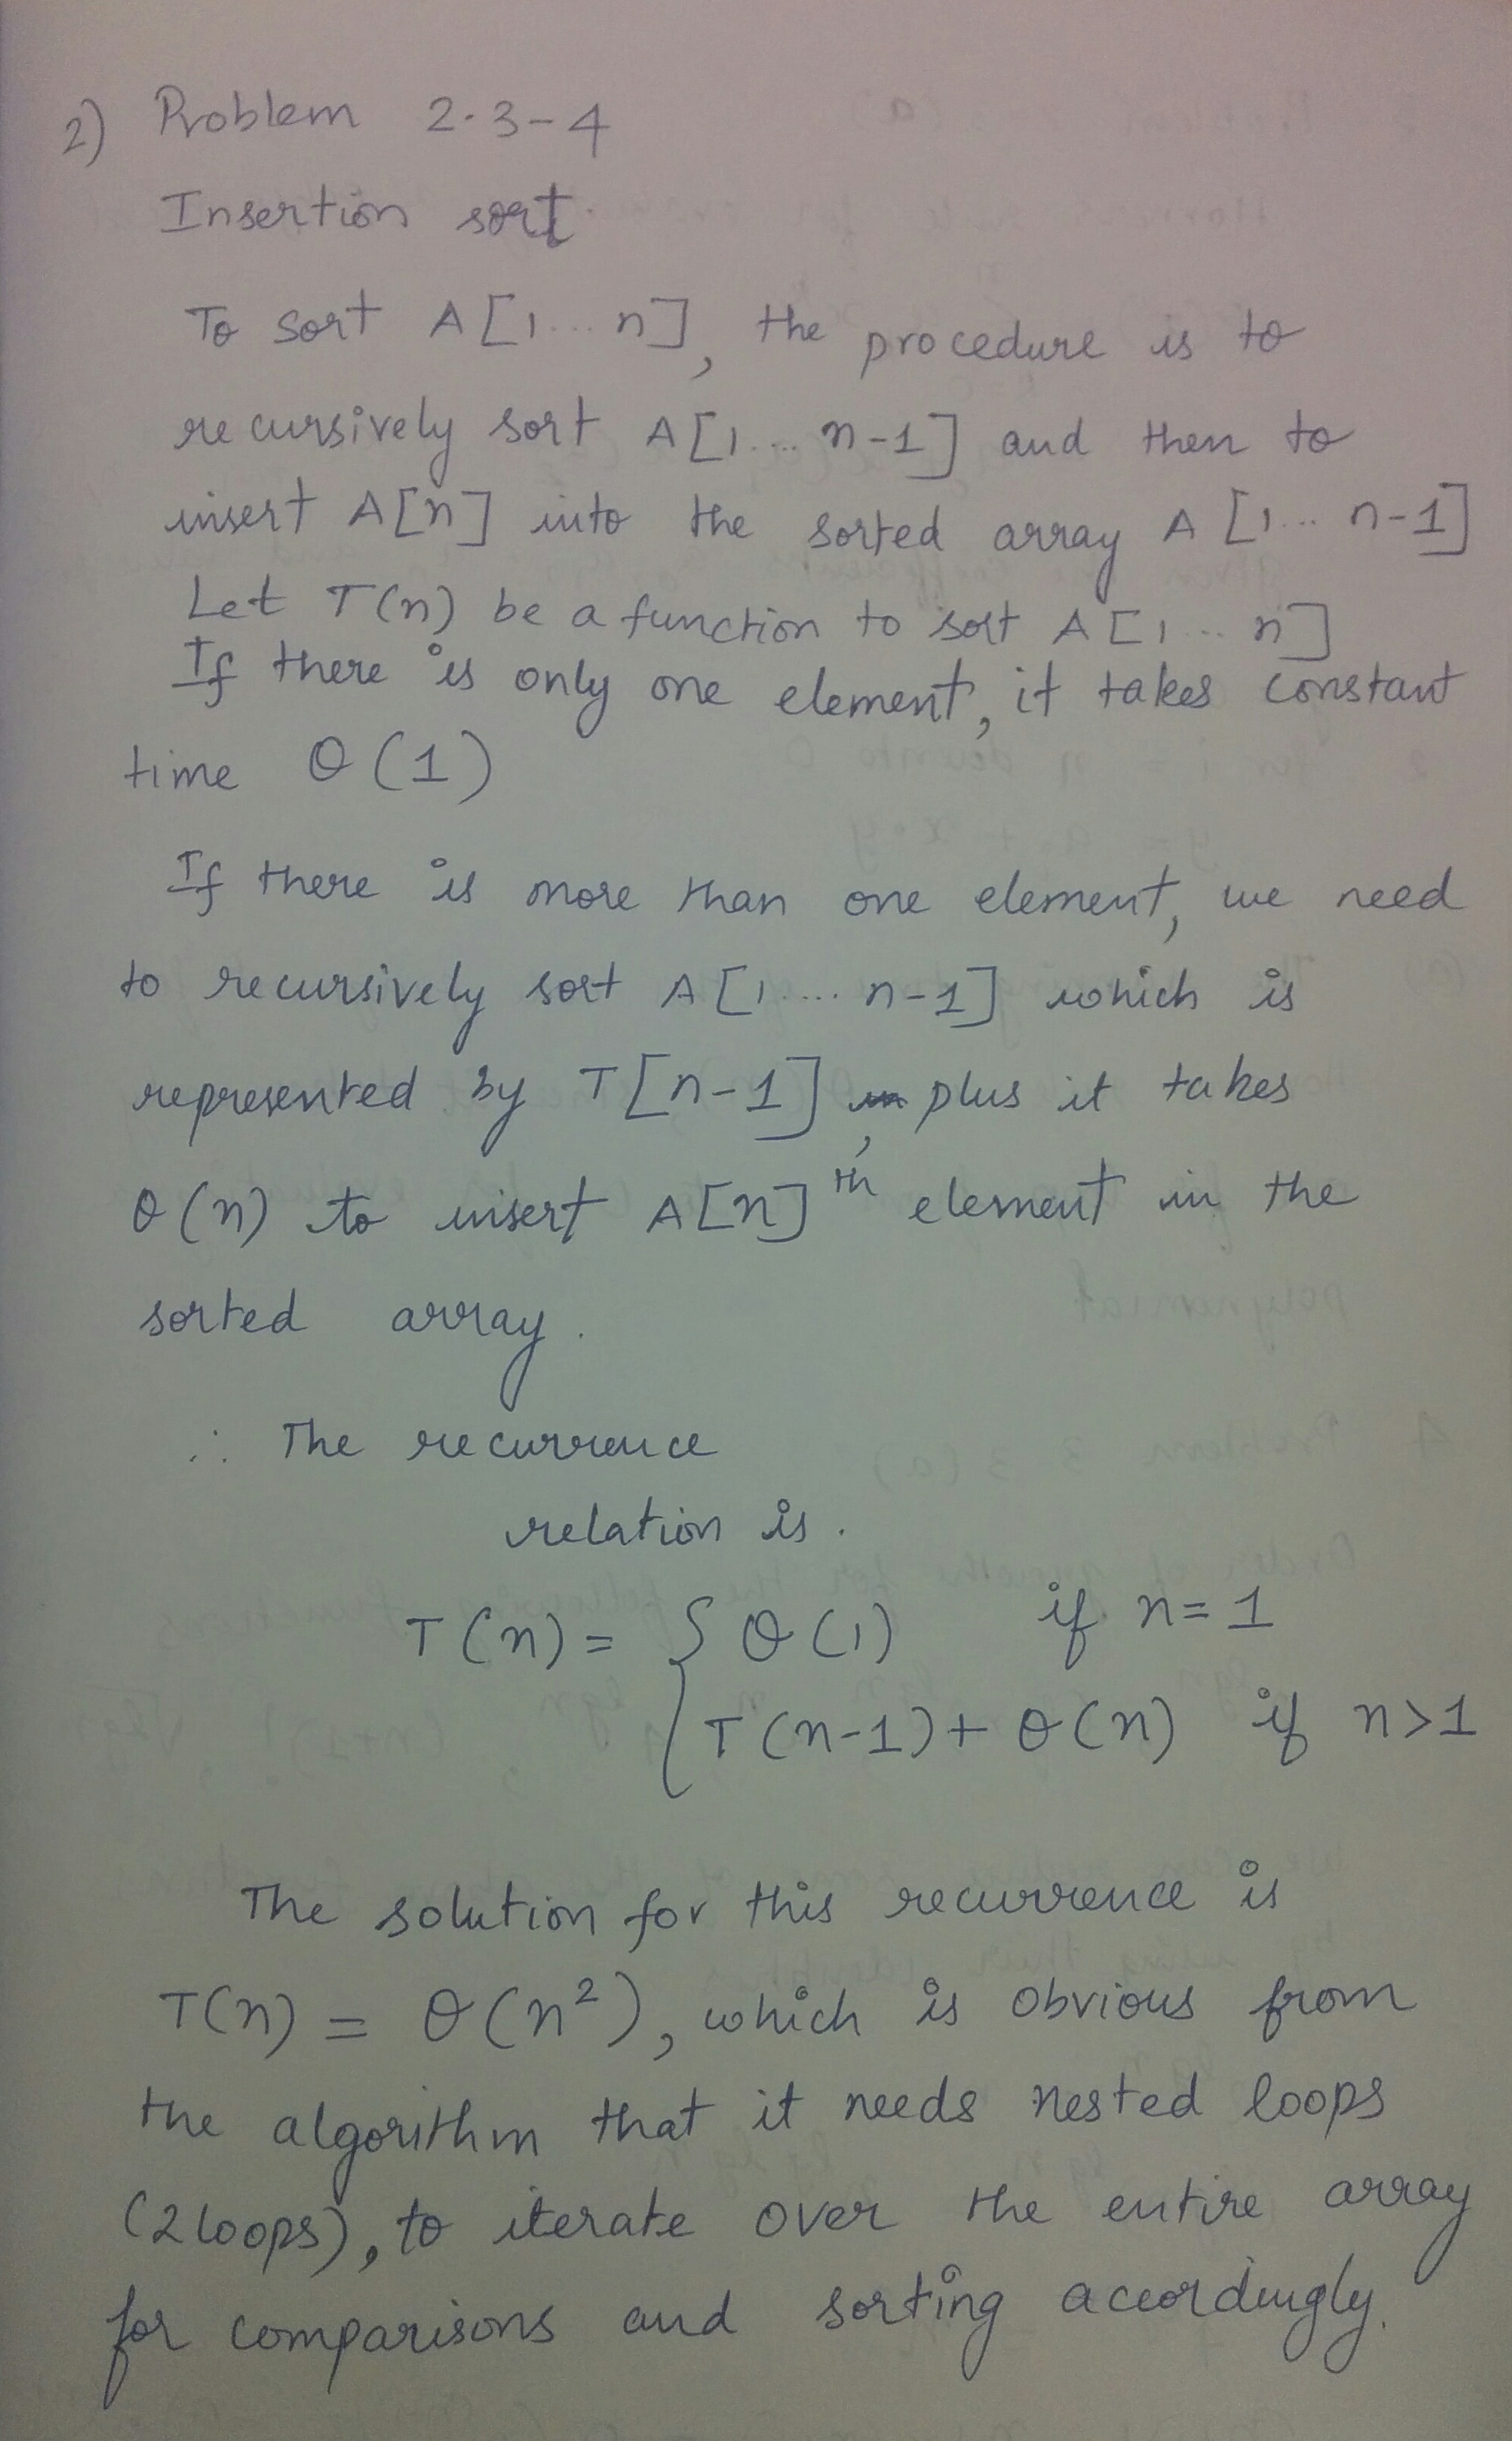 2) Problem 2.3-4
Insertion sort.
To sort A[1...n], the procedure is to
recursively sort A[1....n-1] and then to
insert A[n] into the sorted array A[1...n-1]
Let T(n) be a function to sort A[1...n]
If there is only one element, it takes constant
time Θ(1)
If there is more than one element, we need
to recursively sort A[1....n-1] which is
represented by T[n-1], plus it takes
Θ(n) to insert A[n]th element in the
sorted array.
∴ The recurrence
relation is.
T(n) = { Θ(1) if n=1
T(n-1) + Θ(n) if n>1
The solution for this recurrence is
T(n) = Θ(n²), which is obvious from
the algorithm that it needs nested loops
(2 loops), to iterate over the entire array
for comparisons and sorting accordingly.